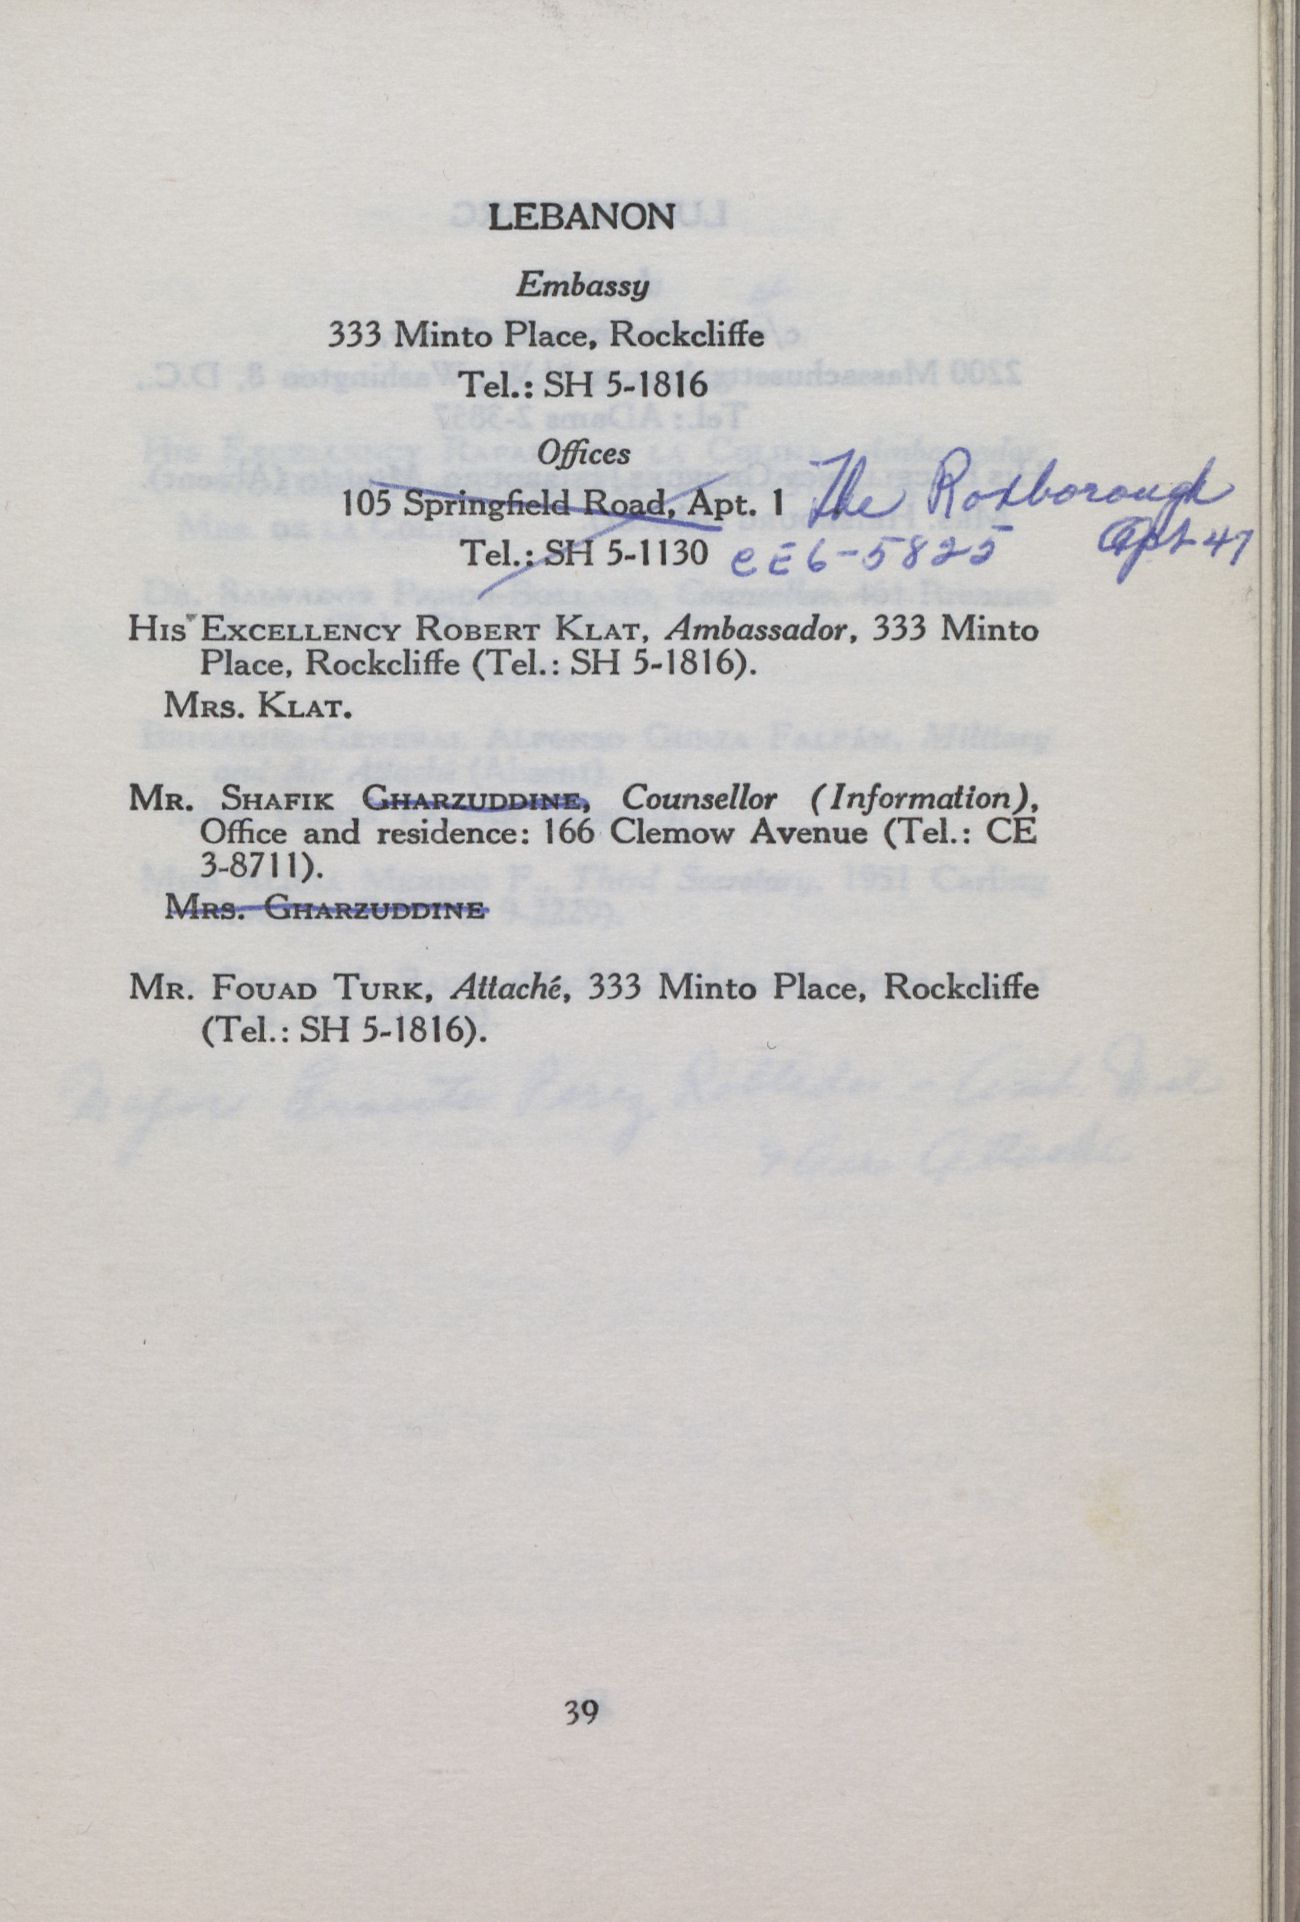 LEBANON
Embassy
333 Minto Place, Rockcliffe
Tel.: SH 5-1816
Offices
105 Springfield Road, Apt. 1 The Roxborough
Apt 47
Tel.: SH 5-1130 CE6-5825
HIS EXCELLENCY ROBERT KLAT, Ambassador, 333 Minto
Place, Rockcliffe (Tel.: SH 5-1816).
MRS. KLAT.
MR. SHAFIK GHARZUDDINE, Counsellor (Information),
Office and residence: 166 Clemow Avenue (Tel.: CE
3-8711).
MRS. GHARZUDDINE
MR. FOUAD TURK, Attaché, 333 Minto Place, Rockcliffe
(Tel.: SH 5-1816).
39